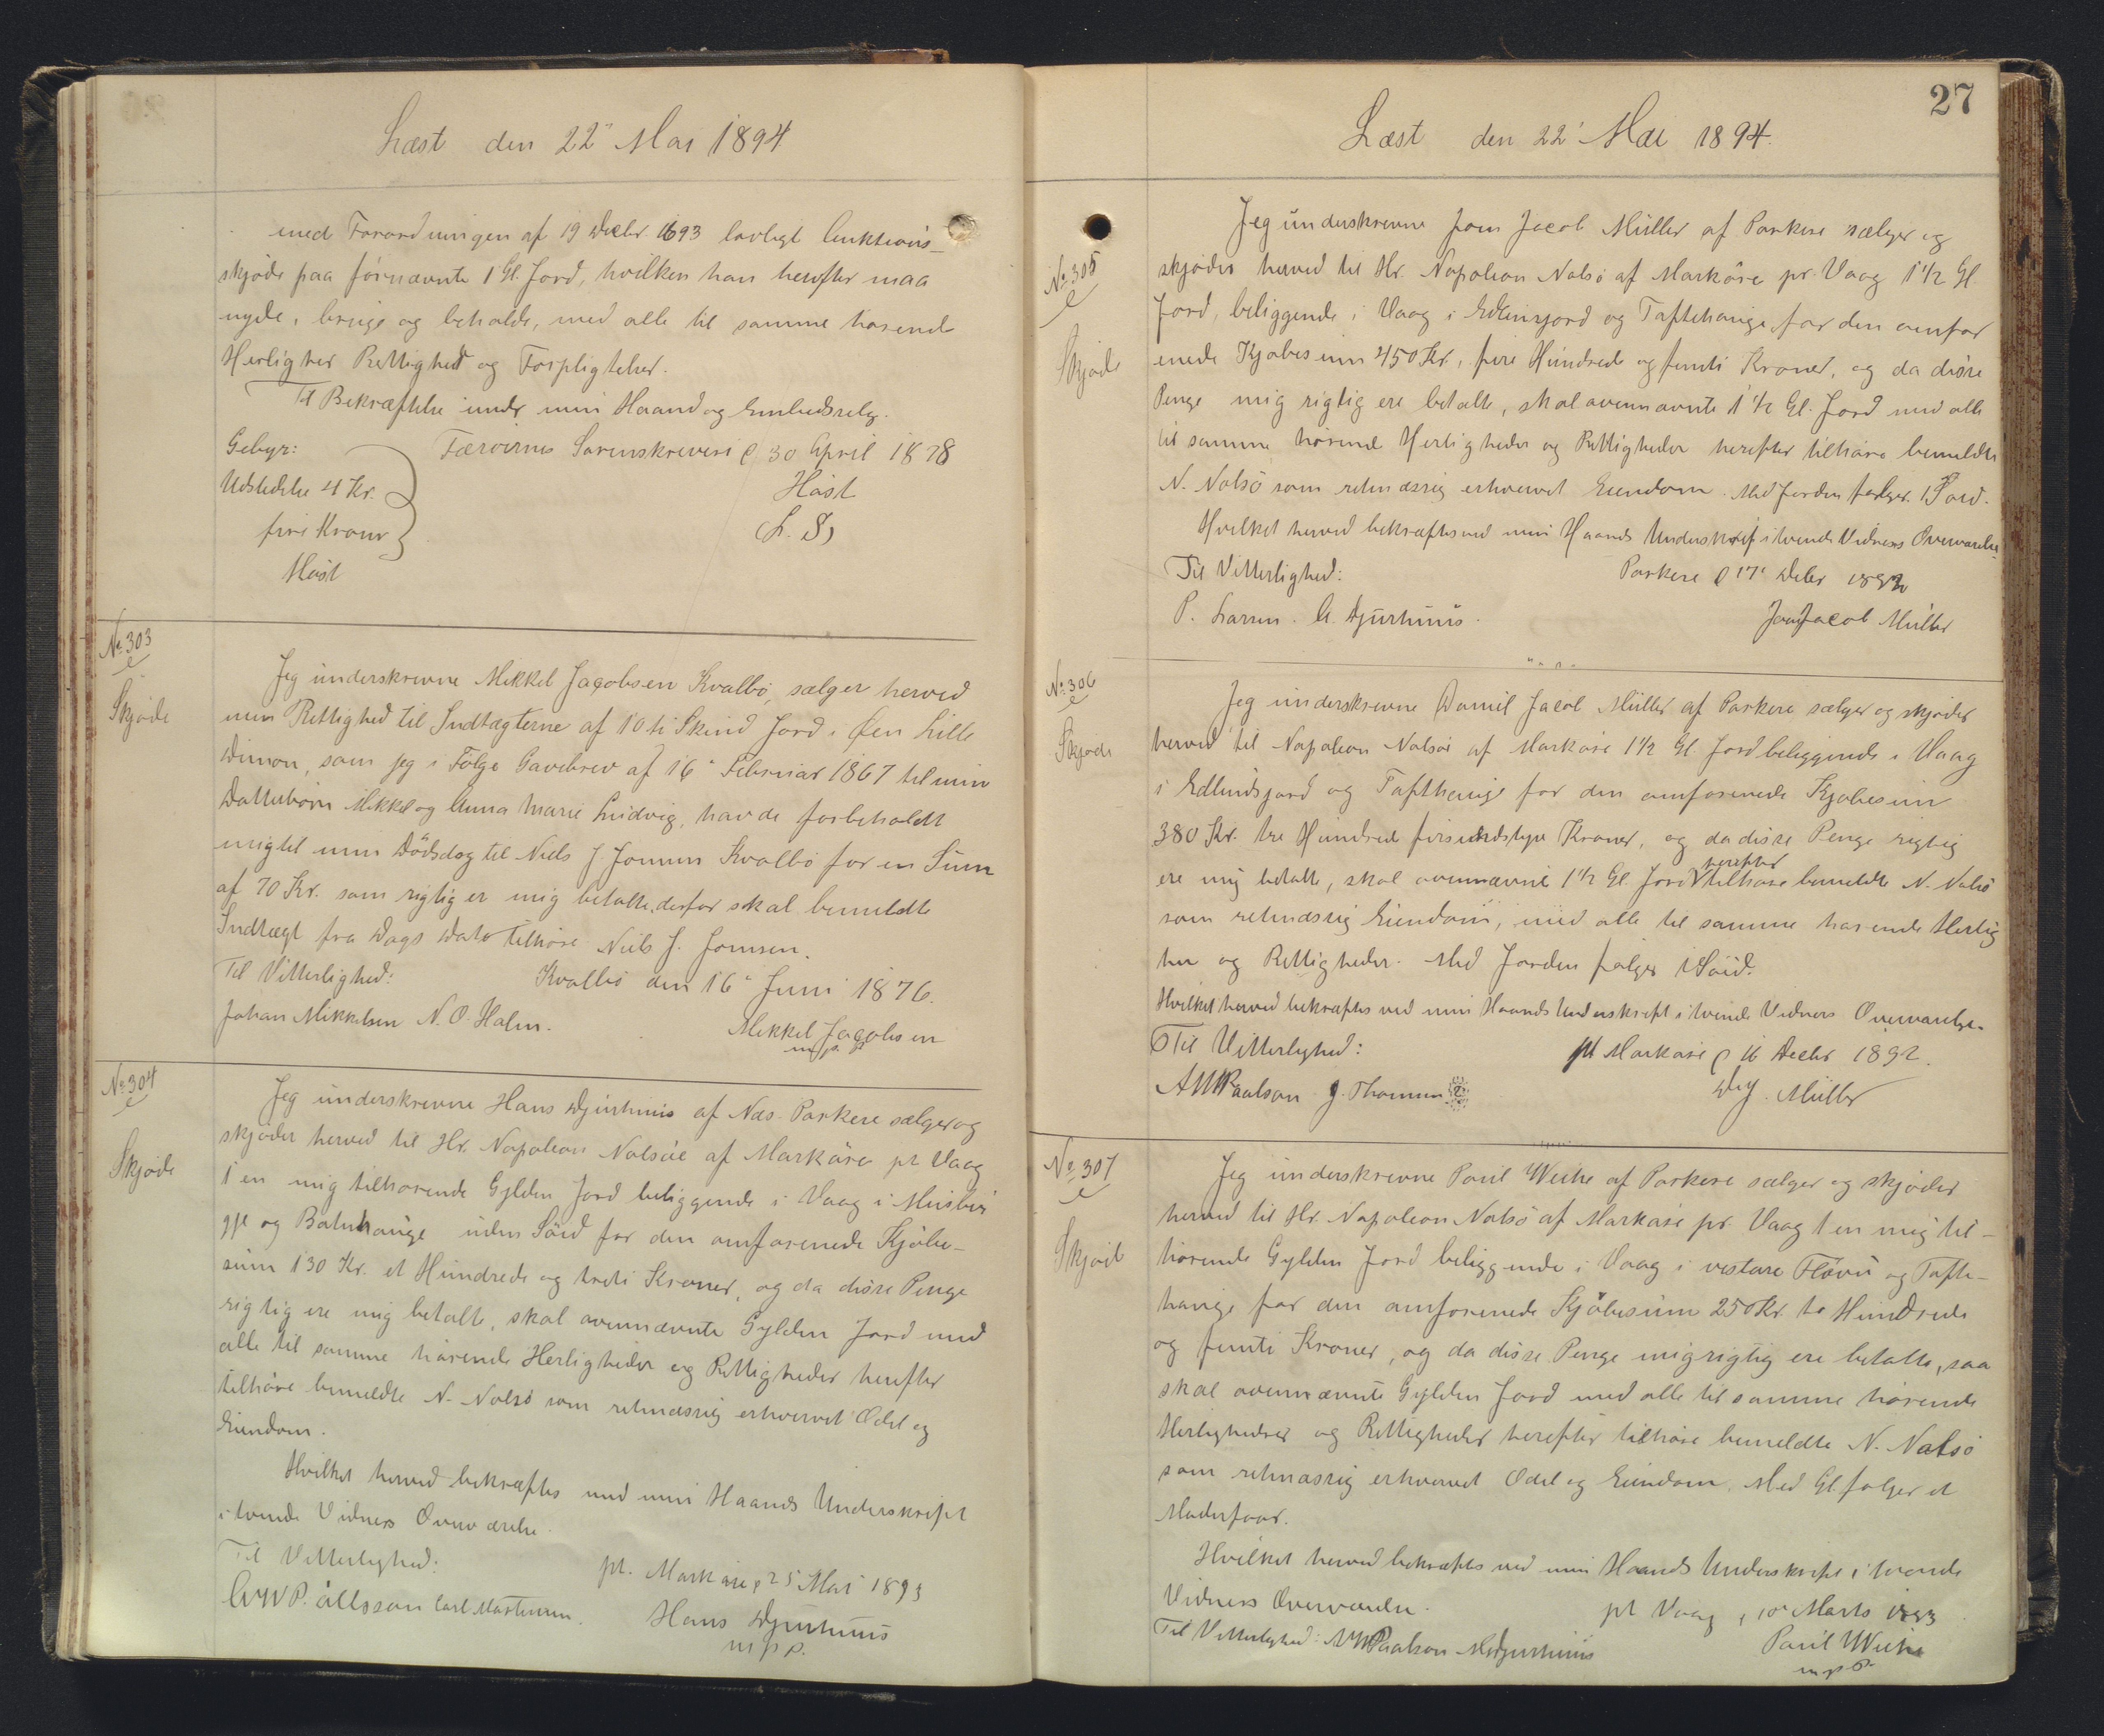 Læst den 22" Mai 1894
med Forordningen af 19 Decbr. 1693 lovligt Auktions-
skjøde paa förnævnte 1 Gl. Jord, hvilken han herefter maa
nyde, bruge og beholde, med alle til samme hørende
Herligher Rettighed og Forpligtelser.
Til Bekræftelse under min Haand og Embedssegl.
Gebyr:
Færøernes Sorenskriveri d 30 April 1878
Udstedelse 4 Kr.
Høst
fire Kroner
(L. S)
Høst
No 303
Skjøde
Jeg underskrevne Mikkel Jacobsen Kvalbø, sælger herved
min Rettighed til Indtægterne af 10 ti Skind Jord i Øen Lille
Dimon, som jeg i Følge Gavebrev af 16" Februar 1867 til min
Datterbørn Mikkel og Anna Marie Ludvig, havde forbeholdt
mig til min Dødsdag til Niels J. Joensen Kvalbø for en Sum
af 70 Kr. som rigtig er mig betalte, derfor skal bemeldte
Indtægt fra Dags Dato tilhøre Niels J. Joensen.
Til Vitterlighed:
Kvalbø den 16" Juni 1876.
Johan Mikkelsen N. O. Holm.
Mikkel Jacobsen
m. p. p.
No 304
Skjøde
Jeg underskrevne Hans Djurhuus af Næs. Porkere sælger og
skjøder herved til Hr. Napoleon Nolsøe af Markåre pr Vaag
1 en mig tilhørende Gylden Jord beliggende i Vaag i Musbir
gje og Botnhauge uden Söid for den omforenede Kjøbe-
sum 130 Kr. et Hundrede og treti Kroner, og da disse Penge
rigtig ere mig betalte, skal ovennævnte Gylden Jord med
alle til samme hørende Herligheder og Rettigheder herefter
tilhøre bemeldte N. Nolsø som retmæssig erhvervet Odel og
Eiendom.
Hvilket herved bekræftes med min Haands Underskrift
i tvende Vidners Overværelse.
Til Vitterlighed:
pt. Markåre, 25 Mai 1893
Carl Mortensen.
Hans Djurhuus
m p p.
27
Læst den 22' Mai 1894.
No 305
Skjøde
Jeg underskrevne Joen Jacob Müller af Porkere sælger og
skjøder herved til Hr. Napoleon Nolsø af Markåre pr. Vaag 1 1/2 Gl.
Jord, beliggende i Vaag i Edlinsjord og Taftehauge for den omfor
enede Kjøbesum 450 Kr., fire Hundrede og femti Kroner, og da disse
Penge mig rigtig ere betalte, skal ovennævnte 1 1/2 Gl. Jord med alle
til samme hørende Herligheder og Rettigheder herefter tilhøre bemeldte
N. Nolsø som retmæssig erhvervet Eiendom. Med Jorden følger 1 Søid.
Hvilket herved bekræftes ved min Haands Underskrift i tvende Vidners Overværelse.
Til Vitterlighed:
Porkere d 17' Decbr 1892
P. Larsen. A. Djurhuus.
Joen Jacob Müller
No 306
Skjøde
Jeg underskrevne Daniel Jacob Müller af Porkere sælger og skjøder
herved til Napoleon Nolsøe af Markåre 1 1/2 Gl. Jord beliggende i Vaag
i Edlindsjord og Tafthauge for den omforenede Kjøbesum
380 Kr. tre Hundrede firsindstyve Kroner, og da disse Penge rigtig
ere mig betalte, skal ovennævnte 1 1/2 Gl. Jord herefter tilhøre bemeldte N. Nolsø
som retmæssig Eiendom, med alle til samme hørende Herlig
her og Rettigheder. Med Jorden følger 1 Søid.
Hvilket herved bekræftes ved min Haands Underskrift i tvende Vidners Overværelse.
Til Vitterlighed:
pt Markåre d 16 Decbr 1892.
AWPaalson J. Thomsen
D. J. Müller
No 307
Skjøde
Jeg underskrevne Poul Weihe af Porkere sælger og skjøder
herved til Hr. Napoleon Nolsø af Markåre pr. Vaag 1 en mig til-
hørende Gylden Jord beliggende i Vaag i vestare Fløvu og Tafte-
hauge for den omforenede Kjøbesum 250 Kr. to Hundrede
og femti Kroner, og da disse Penge mig rigtig ere betalte, saa
skal ovennævnte Gylden Jord med alle til samme hørende
Herligheder og Rettigheder herefter tilhøre bemeldte N. Nolsø
som retmæssig erhvervet Odel og Eiendom. Med Gl. følger et
Moderfaar.
Hvilket herved bekræftes ved min Haands Underskrift i tvende
Vidners Overværelse.
pt Vaag, 10' Marts 1893
Til Vitterlighed: AWPaalson MDjurhuus
Poul Weihe
m p p.